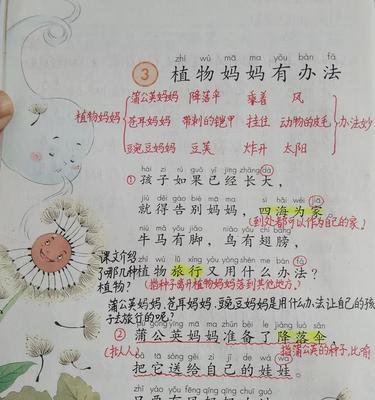 zhí wù mā ma yǒu bàn fǎ
3 植物妈妈有办法
蒲公英妈妈 降落伞 乘着 风
植物妈妈 苍耳妈妈 带刺的铠甲 挂住 动物的皮毛 办法妙
豌豆妈妈 豆荚 炸开 太阳
hái zi rú guǒ yǐ jīng zhǎng dà
①孩子如果已经长大,
jiù děi gào bié mā ma sì hǎi wéi jiā
就得告别妈妈,四海为家。
(到处都可以作自己的家。)
牛马有脚,鸟有翅膀,
课文介绍
zhí wù lǚ xíng yòu yòng shén me bàn fǎ
了哪几种植物旅行又用什么办法?
植物? (指种子离开植物妈妈落到其他地方。)
蒲公英妈妈、苍耳妈妈、豌豆妈妈是用什么办法让自己的孩
子去旅行的呢?
pú gōng yīng mā ma zhǔn bèi le jiàng luò sǎn
②蒲公英妈妈准备了降落伞,
(拟人) 指蒲公英的种子,比喻
bǎ tā sòng gěi zì jǐ de wá wa
把它送给自己的娃娃。
zhǐ yào yǒu fēng qīng qīng chuī guò
只要有风轻轻吹过